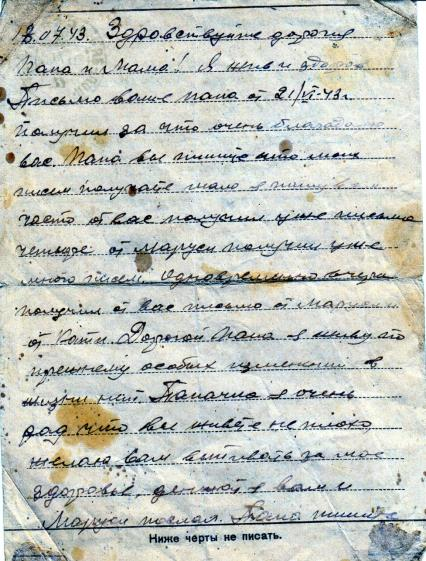 18.07.43. Здравствуйте дорогие
Папа и Мама! Я жив и здоров
Письмо ваше папа от 21/VI-43г
получил за что очень благодарю
вас Папа вы пишите что моих
писем получаете мало я пишу вам
часто от вас получил уже письма
четыре от Маруси получил уже
много писем. Одновременно вчера
получил от вас письмо от Маруси и
от Кати. Дорогой папа я живу по
прежнему особых изменений в
жизни нет Папочка я очень
рад что вы живёте не плохо,
желаю вам выпивать за мое
здоровье, денег я вам и
Марусе послал. Папа пишите
Ниже черты не писать.